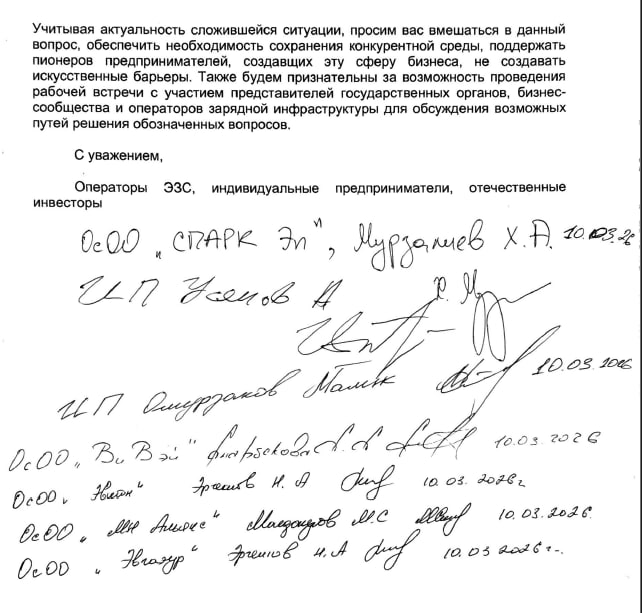 Учитывая актуальность сложившейся ситуации, просим вас вмешаться в данный
вопрос, обеспечить необходимость сохранения конкурентной среды, поддержать
пионеров предпринимателей, создавших эту сферу бизнеса, не создавать
искусственные барьеры. Также будем признательны за возможность проведения
рабочей встречи с участием представителей государственных органов, бизнес-
сообщества и операторов зарядной инфраструктуры для обсуждения возможных
путей решения обозначенных вопросов.
С уважением,
Операторы ЭЗС, индивидуальные предприниматели, отечественные
инвесторы
ОсОО „СПАРК Эл", Мурзалиев Х.А. 10.03.26
ИП А
ИП Омурзаков 10.03.2026
ОсОО „Ви Вэй" 10.03.2026
ОсОО „ " Эргешов Н.А 10.03.2026г
ОсОО „МН " М.С 10.03.2026.
ОсОО „ " Эргешов Н.А 10.03 2026г.